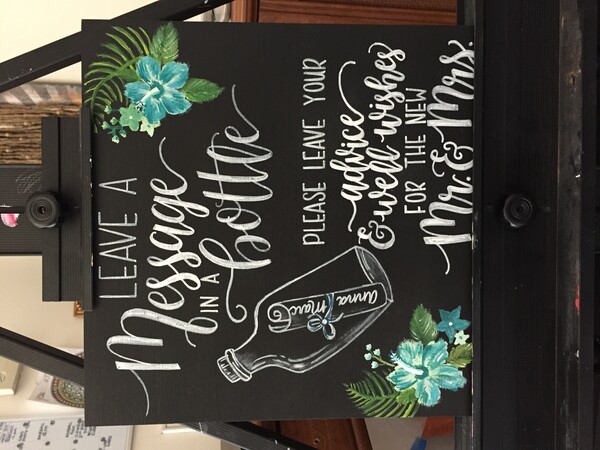 LEAVE A
Message
IN A
bottle
PLEASE LEAVE YOUR
advice
& well-wishes
FOR THE NEW
Mr. & Mrs.
anna
Marc